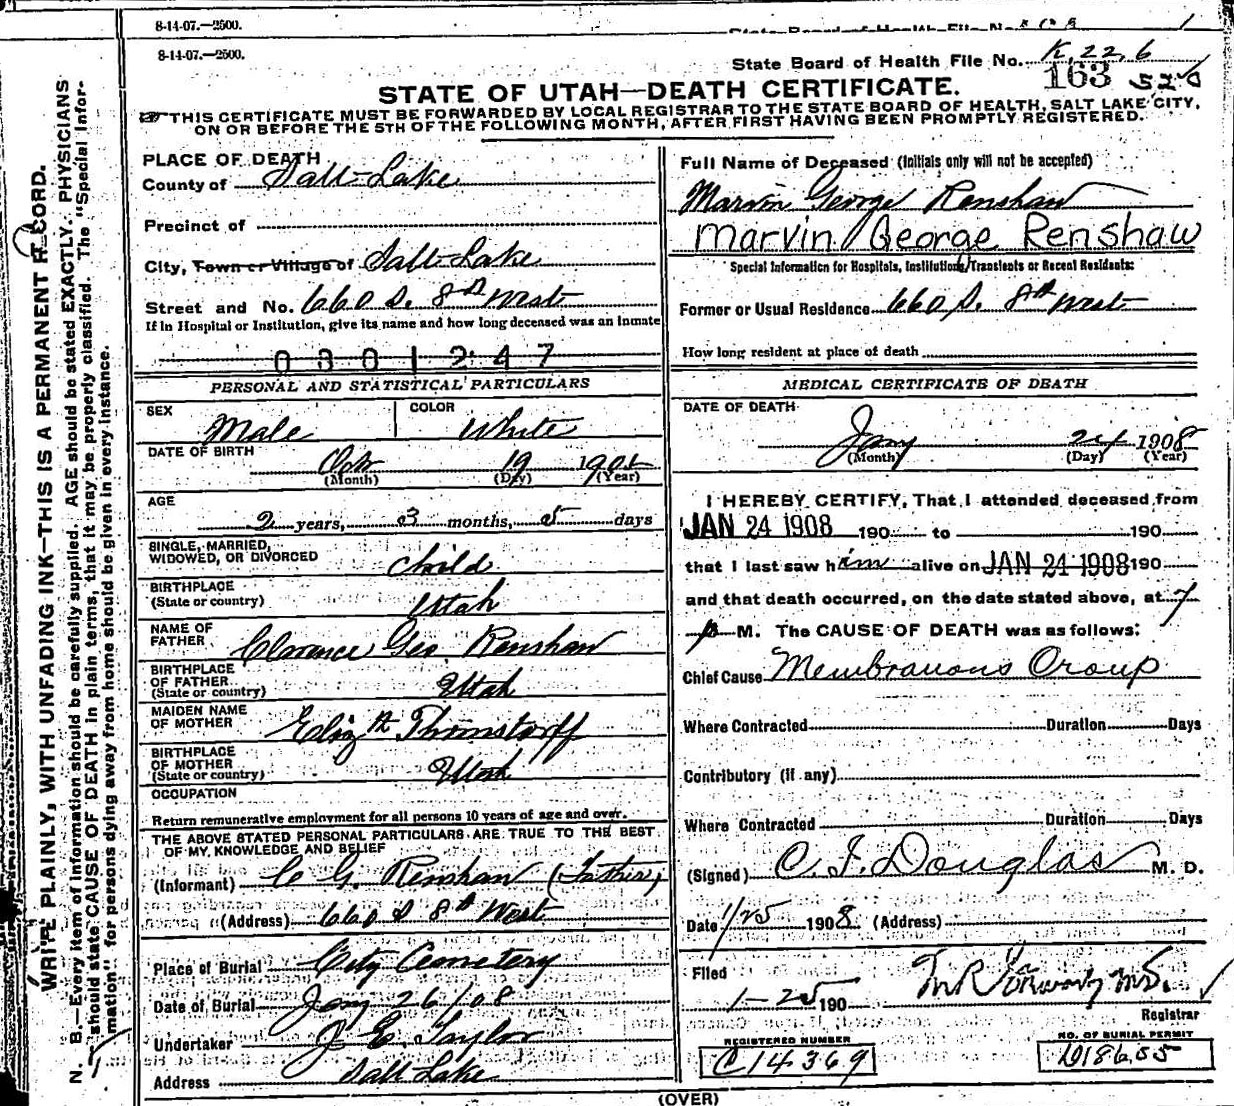 8-14-07.—2500.
8-14-07.—2500.
State Board of Health File No. K, 22, 6
163 520
STATE OF UTAH—DEATH CERTIFICATE.
THIS CERTIFICATE MUST BE FORWARDED BY LOCAL REGISTRAR TO THE STATE BOARD OF HEALTH, SALT LAKE CITY,
ON OR BEFORE THE 5TH OF THE FOLLOWING MONTH, AFTER FIRST HAVING BEEN PROMPTLY REGISTERED.
WRITE PLAINLY, WITH UNFADING INK—THIS IS A PERMANENT RECORD.
N. B.—Every item of information should be carefully supplied. AGE should be stated EXACTLY. PHYSICIANS
should state CAUSE OF DEATH in plain terms, that it may be properly classified. The "Special Infor-
mation" for persons dying away from home should be given in every instance.
PLACE OF DEATH
County of Salt Lake
Precinct of
City, Town or Village of Salt Lake
Street and No. 660 S. 8th West
If in Hospital or Institution, give its name and how long deceased was an inmate
0301247
PERSONAL AND STATISTICAL PARTICULARS
SEX Male
COLOR White
DATE OF BIRTH Oct 19 190
(Month) (Day) (Year)
AGE
2 years, 3 months, 5 days
SINGLE, MARRIED,
WIDOWED, OR DIVORCED Child
BIRTHPLACE
(State or country) Utah
NAME OF
FATHER Clarence Geo Renshaw
BIRTHPLACE
OF FATHER
(State or country) Utah
MAIDEN NAME
OF MOTHER Elizth Thomstorff
BIRTHPLACE
OF MOTHER
(State or country) Utah
OCCUPATION
Return remunerative employment for all persons 10 years of age and over.
THE ABOVE STATED PERSONAL PARTICULARS ARE TRUE TO THE BEST
OF MY KNOWLEDGE AND BELIEF
(Informant) C G. Renshaw (Father)
(Address) 660 S 8th West
Place of Burial City Cemetery
Date of Burial Jany 26/08
Undertaker J E. Taylor
Address Salt Lake
Full Name of Deceased (Initials only will not be accepted)
Marvin George Renshaw
Marvin George Renshaw
Special Information for Hospitals, Institutions, Transients or Recent Residents:
Former or Usual Residence 660 S. 8th West
How long resident at place of death
MEDICAL CERTIFICATE OF DEATH
DATE OF DEATH
Jany 24 1908
(Month) (Day) (Year)
I HEREBY CERTIFY, That I attended deceased from
JAN 24 1908 190 to 190
that I last saw him alive on JAN 24 1908 190
and that death occurred, on the date stated above, at 7
p M. The CAUSE OF DEATH was as follows:
Chief Cause Membranous Croup
Where Contracted Duration Days
Contributory (if any)
Where Contracted Duration Days
(Signed) C. F. Douglas M. D.
Date 1/25 1908 (Address)
Filed
1-25 190
Registrar
REGISTERED NUMBER
C14369
NO. OF BURIAL PERMIT
D18655
(OVER)